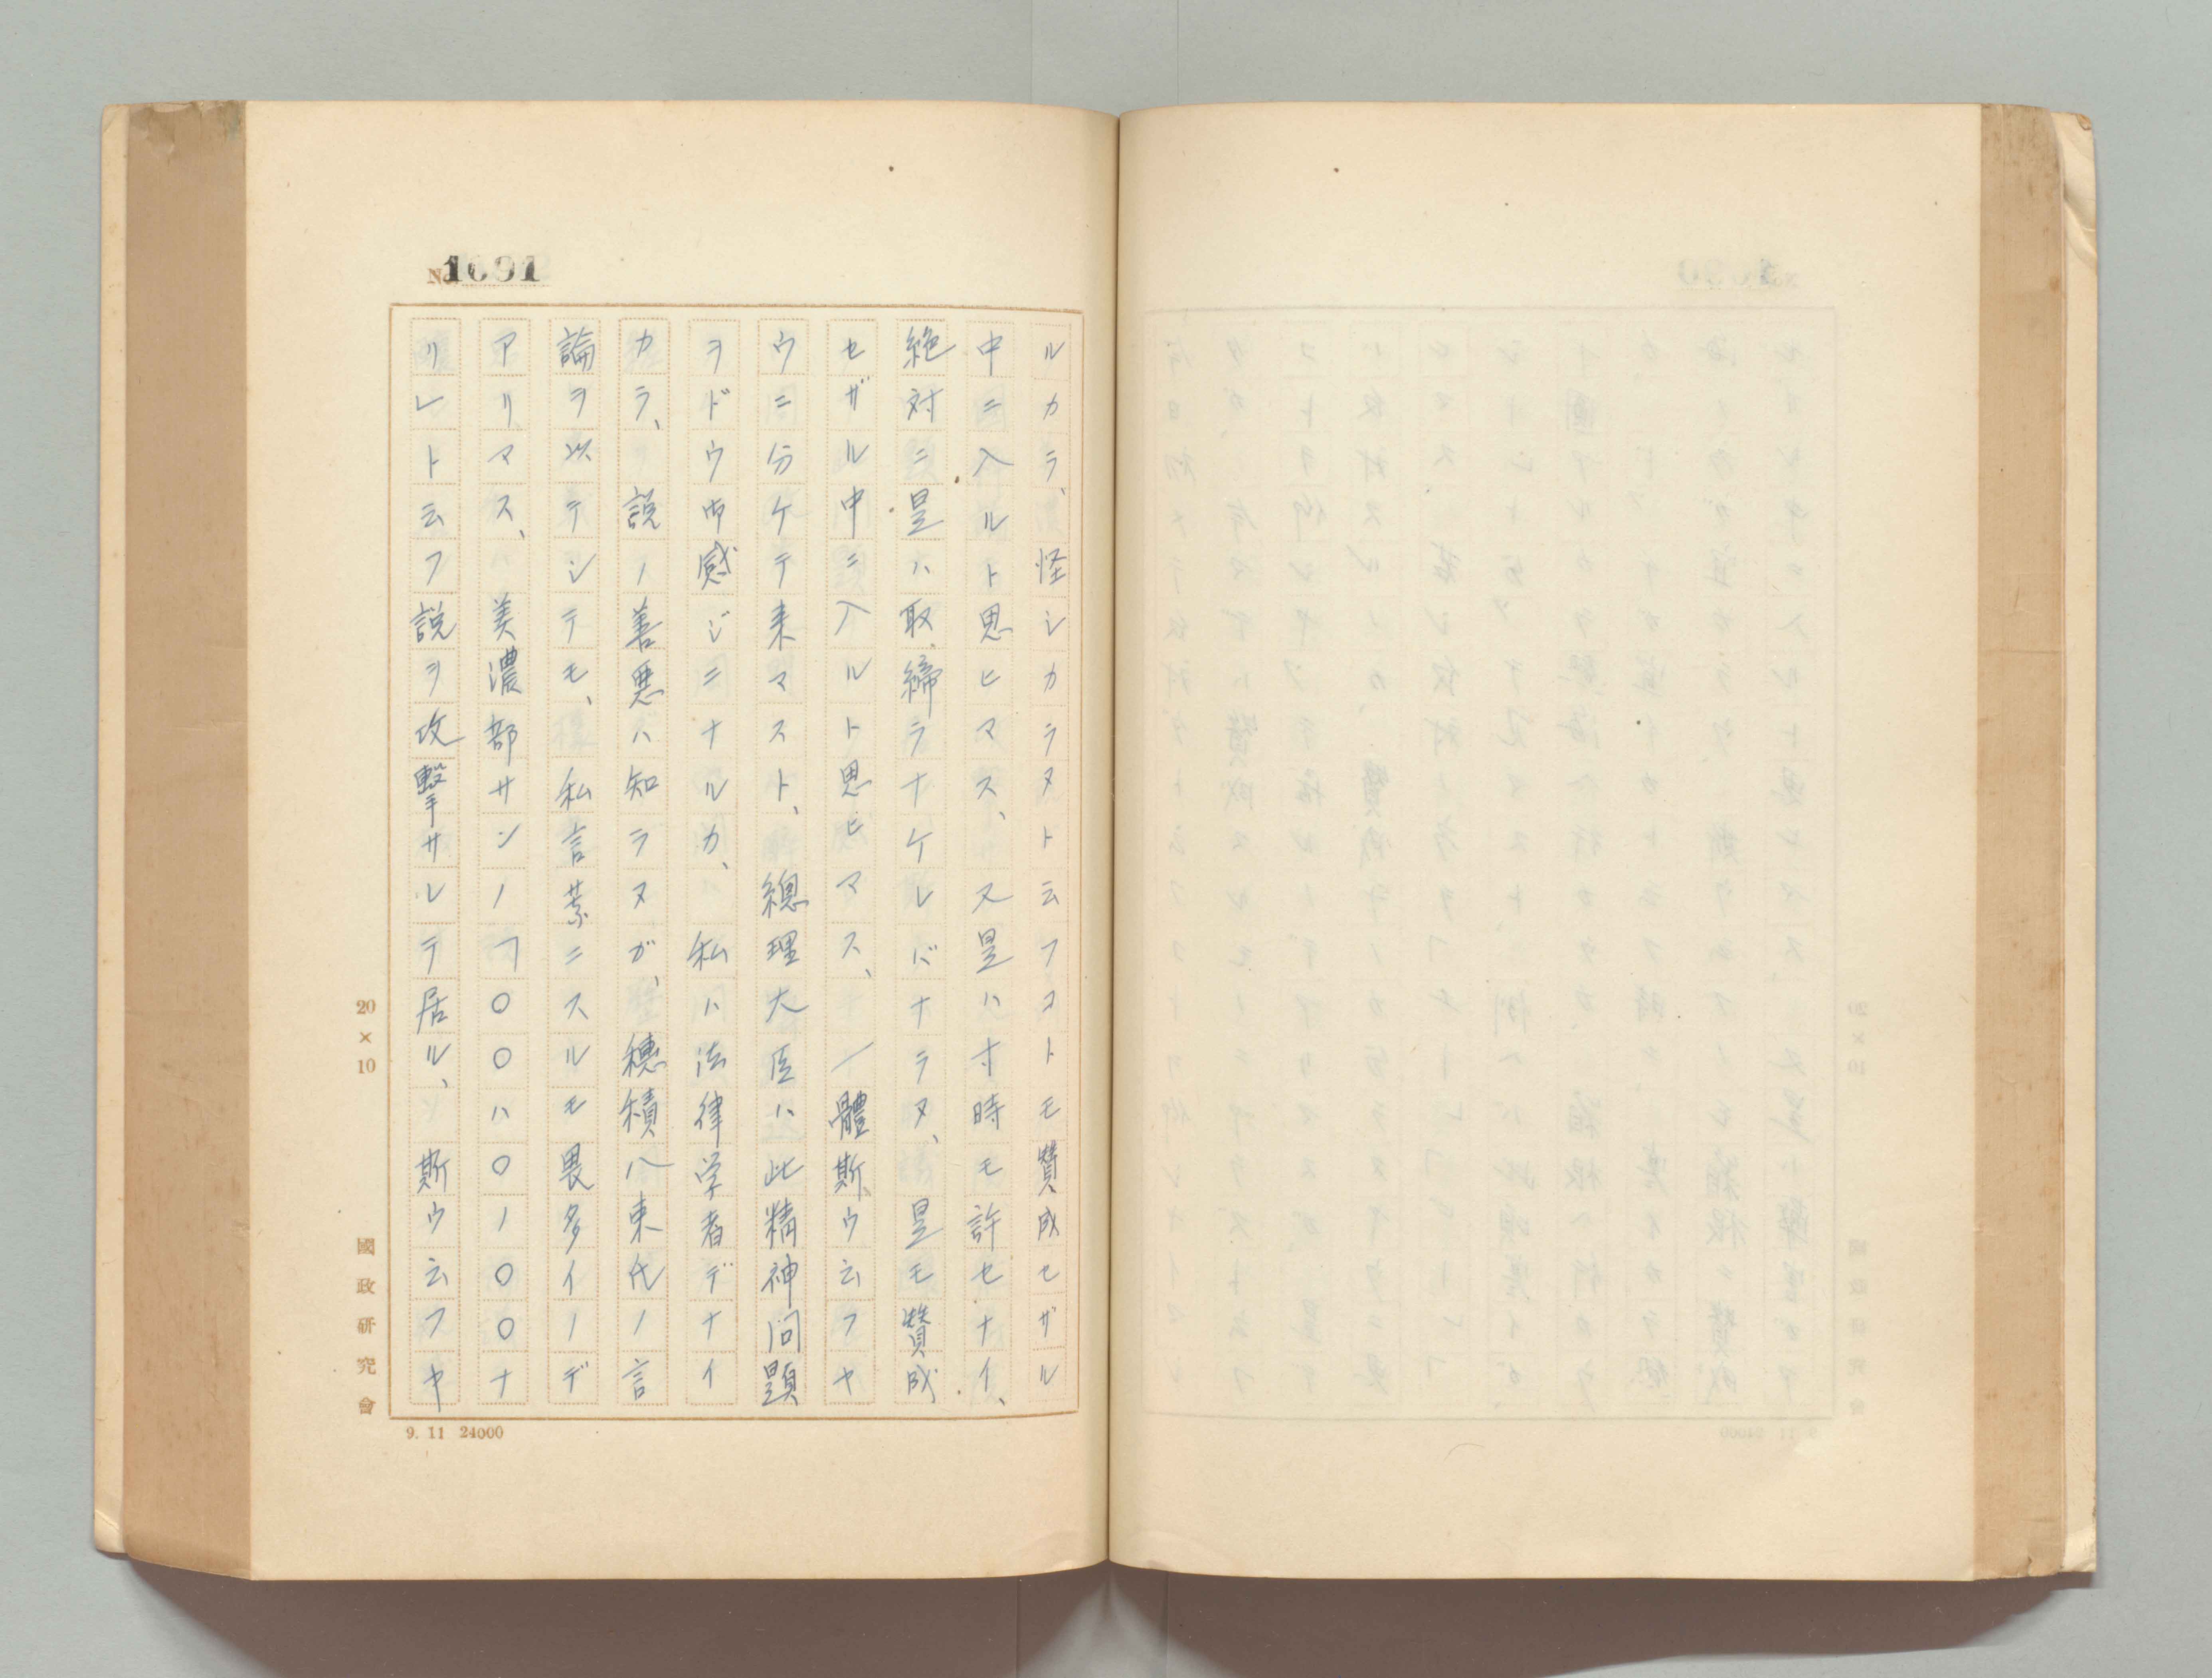 No 1091
ルカラ、怪シカラヌト云フコトモ賛成セザル
中ニ入ルト思ヒマス、又是ハ寸時モ許セナイ、
絶対ニ是ハ取締ラナケレバナラヌ、是モ賛成
セザル中ニ入ルト思ヒマス、一體斯ウ云フヤ
ウニ分ケテ来マスト、總理大臣ハ此精神問題
ヲドウ御感ジニナルカ、私ハ法律学者デナイ
カラ、説ノ善悪ハ知ラヌガ、穗積八束氏ノ言
論ヲ以テシテモ、私言葉ニスルモ畏多イノデ
アリマス、美濃部サンノ「〇〇ハ〇ノ〇〇ナ
リレト云フ説ヲ攻擊サルテ居ル、斯ウ云フヤ
20×10
國政研究會
9. 11 24000